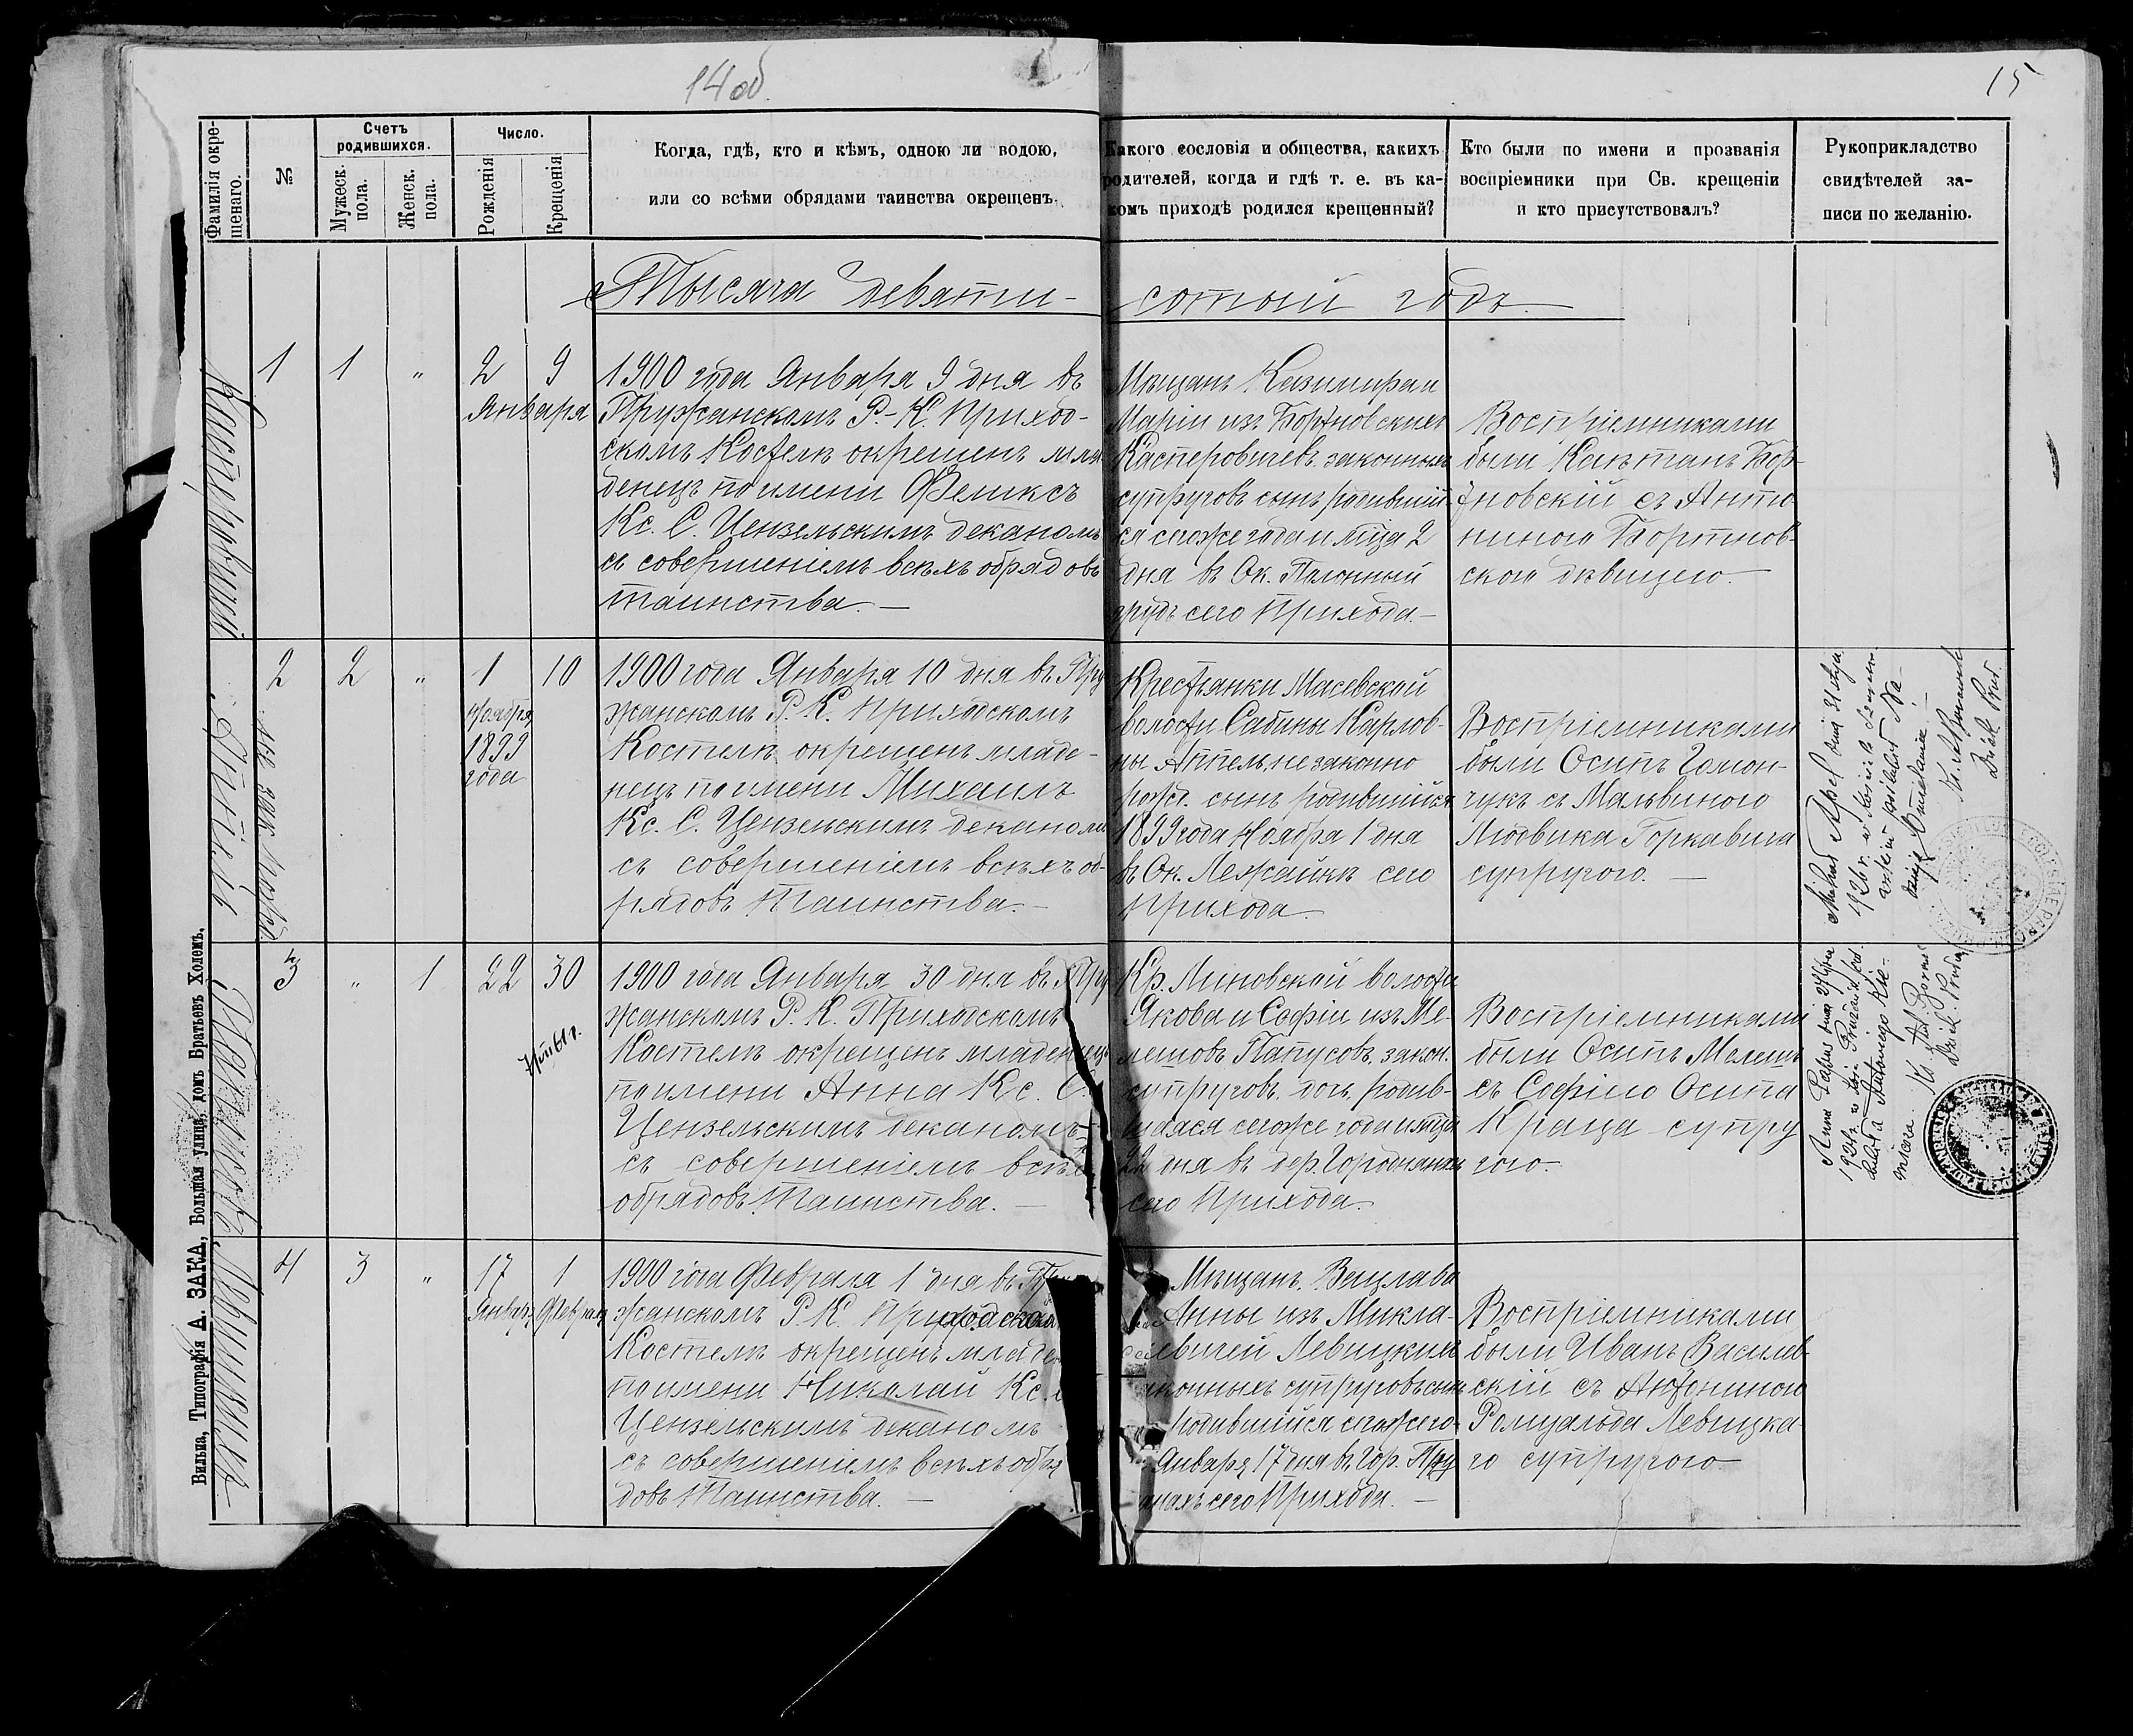 14 об.
15
Фамилія окре-
щенаго.
№
Счетъ
родившихся.
Мужеск.
пола.
Женск.
пола.
Число.
Рожденія
Крещенія
Когда, гдѣ, кто и кѣмъ, одною ли водою,
или со всѣми обрядами таинства окрещенъ.
Какого сословія и общества, какихъ
родителей, когда и гдѣ т. е. въ ка-
комъ приходѣ родился крещенный?
Кто были по имени и прозванія
воспріемники при Св. крещеніи
и кто присутствовалъ?
Рукоприкладство
свидѣтелей за-
писи по желанію.
Тысяча девяти-
сотый годъ.
1
1
"
2
9
Января
1900 года Января 9 дня въ
Пружанскомъ Р.-К. Приход-
скомъ Костелѣ окрещенъ мла
денецъ по имени Феликсъ
Кс. С. Цензельскимъ деканомъ
съ совершеніемъ всѣхъ обрядовъ
таинства.—
Мѣщанъ Казимира и
Маріи изъ Бортновскихъ
Касперовичевъ законныхъ
супруговъ сынъ родившій-
ся сегоже года и мѣца 2
дня въ Ок.
грудъ сего Прихода.—
Воспріемниками
были Каэтанъ Бор-
тновскій съ Анто
ниною Бортнов-
скою дѣвицею.
2
2
"
1
10
Ноября
1899
года
1900 года Января 10 дня въ Пру
жанскомъ Р. К. Приходскомъ
Костелѣ окрещенъ младе-
нецъ по имени Михаилъ
Кс. С. Цензельскимъ деканомъ
съ совершеніемъ всѣхъ об-
рядовъ Таинства.—
Крестьянки Масевской
волости Сабины Карлов-
ны Аппель, незаконно
рожд. сынъ родившійся
1899 года Ноября 1 дня
въ Ок. Лежайкѣ сего
Прихода.
Воспріемниками
были Осипъ Гомон-
чукъ съ Мальвиною
Людвика Горкавича
супругою.—
Аппель
незак. рожд.
3
"
1
22
30
1900 года Января 30 дня въ Пру
жанскомъ Р. К. Приходскомъ
Костелѣ окрещенъ младенецъ
по имени Анна Кс. С.
Цензельскимъ деканомъ
съ совершеніемъ всѣхъ
обрядовъ Таинства.—
Кр. Линовской волости
Якова и Софіи изъ Ме-
лешовъ Папусовъ. закон.
супруговъ. дочь родив-
шаяся сегоже года и мѣца
22 дня въ дер. Городнянки
сего Прихода.
Воспріемниками
были Осипъ Мелешъ
съ Софіею Осипа
Краца супру
гою.
Anna Papus dnia 27
4
3
"
17
1
Января
Февраля
1900 года Февраля 1 дня въ Пру
жанскомъ Р. К. Приходскомъ
Костелѣ окрещенъ младе
по имени Николай Кс. С
Цензельскимъ деканомъ
съ совершеніемъ всѣхъ обря
довъ Таинства.—
Мѣщанъ. Вацлава
Анны изъ Микла-
евичей Левицкихъ
конныхъ супруговъ сынъ
родившійся сегоже го-
Января 17 дня въ Гор. Пру
анахъ сего Прихода.—
Воспріемниками
были Иванъ Василев-
скій съ Антониною
Ромуальда Левицка
го супругою.
Вильна, Типографія А. ЗАКА, Большая улица, домъ Братьевъ Холемъ.